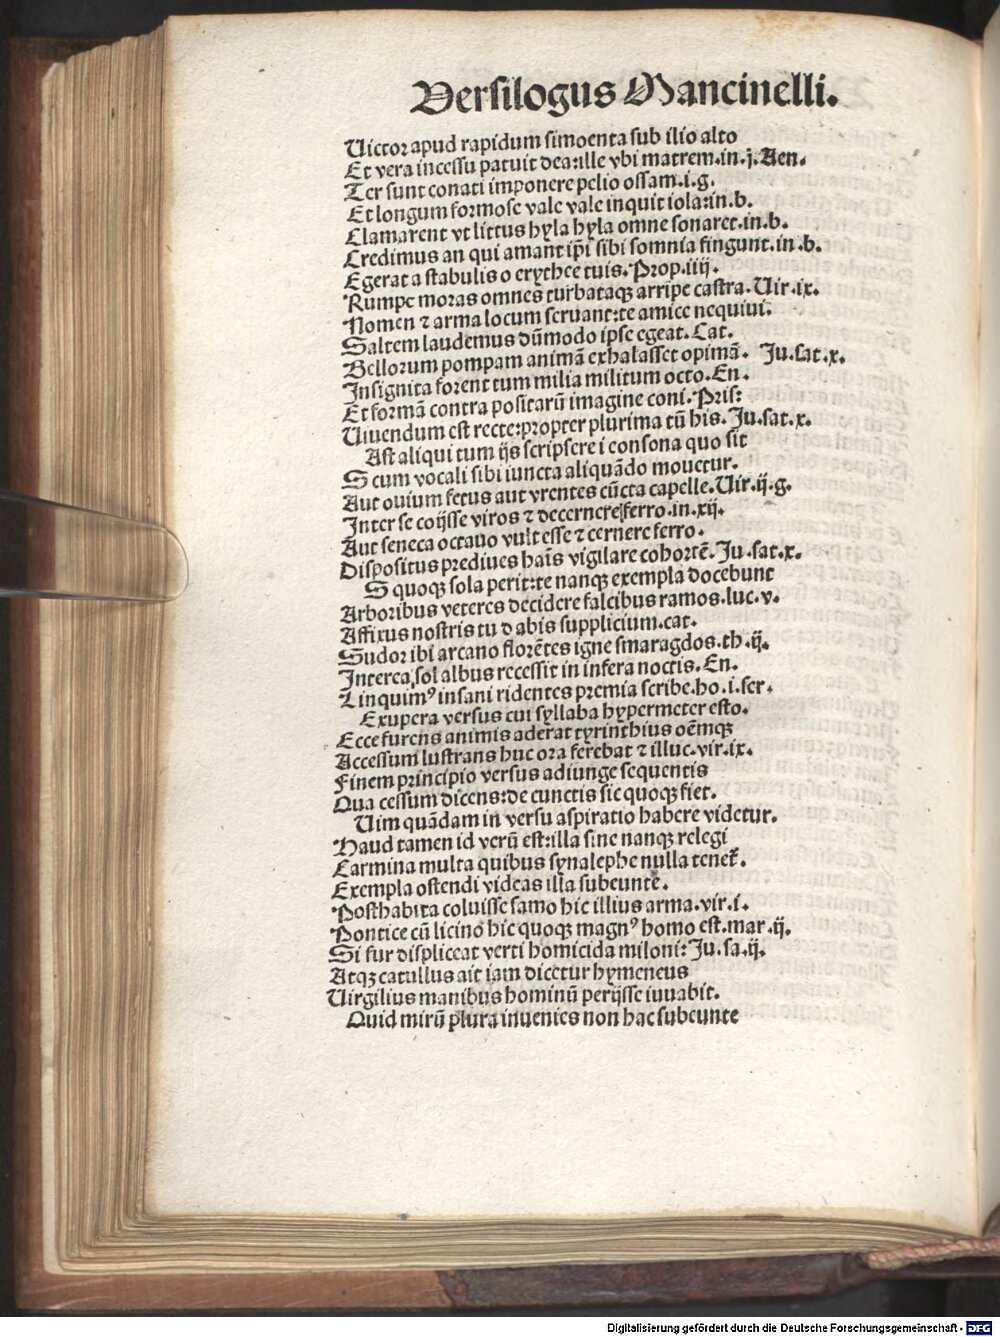 Versilogus Mancinelli.
Uictor apud rapidum simoenta sub ilio alto
Et vera incessu patuit dea:ille vbi matrem.in.j.Aen.
Ter sunt conati imponere pelio ossam.i.g.
Et longum formose vale vale inquit iola:in.b.
Clamarent vt littus hyla hyla omne sonaret.in.b.
Credimus an qui amant ip̄i sibi somnia fingunt.in.b.
Egerat a stabulis o erythee tuis.Prop.iiij.
Rumpe moras omnes turbataqȝ arripe castra.Uir.ix.
Nomen ⁊ arma locum seruant:te amice nequiui.
Saltem laudemus dūmodo ipse egeat.Cat.
Bellorum pompam animā exhalasset opimā. Ju.sat.x.
Insignita forent tum milia militum octo.En.
Et formā contra positarū imagine coni.Pris:
Uiuendum est recte:propter plurima tū his.Ju.sat.x.
Ast aliqui tum ijs scripsere i consona quo sit
S cum vocali sibi iuncta aliquādo mouetur.
Aut ouium fetus aut vrentes cūcta capelle.Uir.ij.g.
Inter se coijsse viros ⁊ decernere ferro.in.xij.
Aut seneca octauo vult esse ⁊ cernere ferro.
Dispositus prediues hais̄ vigilare cohortē.Ju.sat.x.
S quoqȝ sola perit:te nanqȝ exempla docebunt
Arboribus veteres decidere falcibus ramos.luc.v.
Affixus nostris tu dabis supplicium.cat.
Sudor ibi arcano florētes igne smaragdos.th.ij.
Interea sol albus recessit in infera noctis.En.
Linquimꝰ insani ridentes premia scribe.ho.i.ser.
Exupera versus cui syllaba hypermeter esto.
Ecce furens animis aderat tyrinthius oēmqȝ
Accessum lustrans huc ora ferebat ⁊ illuc.vir.ix.
Finem principio versus adiunge sequentis
Qua cessum dicens:de cunctis sic quoqȝ fiet.
Uim quādam in versu aspiratio habere videtur.
Haud tamen id verū est:illa sine nanqȝ relegi
Carmina multa quibus synalephe nulla tenet̄.
Exempla ostendi videas illa subeunte.
Posthabita coluisse samo hic illius arma.vir.i.
Pontice cū licino hic quoqȝ magnꝰ homo est.mar.ij.
Si fur displiceat verti homicida miloni:Ju.sa.ij.
Atqȝ catullus ait iam dicetur hymeneus
Uirgilius manibus hominū perijsse iuuabit.
Quid mirū plura inuenies non hac subeunte
Digitalisierung gefördert durch die Deutsche Forschungsgemeinschaft - DFG